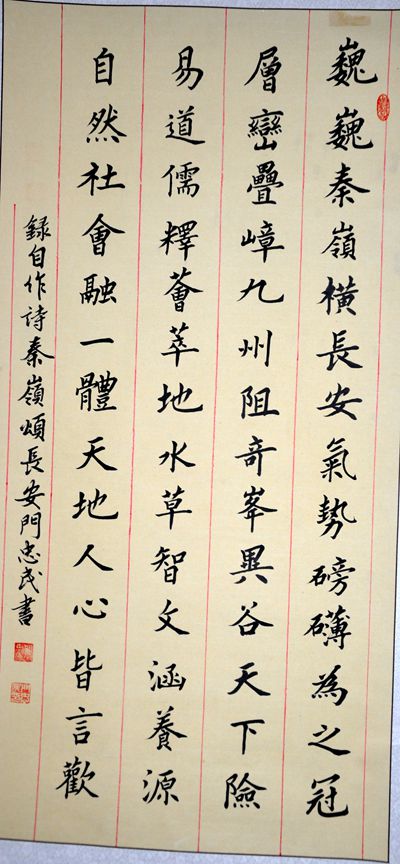 巍巍秦嶺橫長安氣勢磅礴為之冠
層巒疊嶂九州阻奇峯異谷天下險
易道儒釋薈萃地水草智文涵養源
自然社會融一體天地人心皆言歡
録自作詩秦嶺頌長安門忠民書